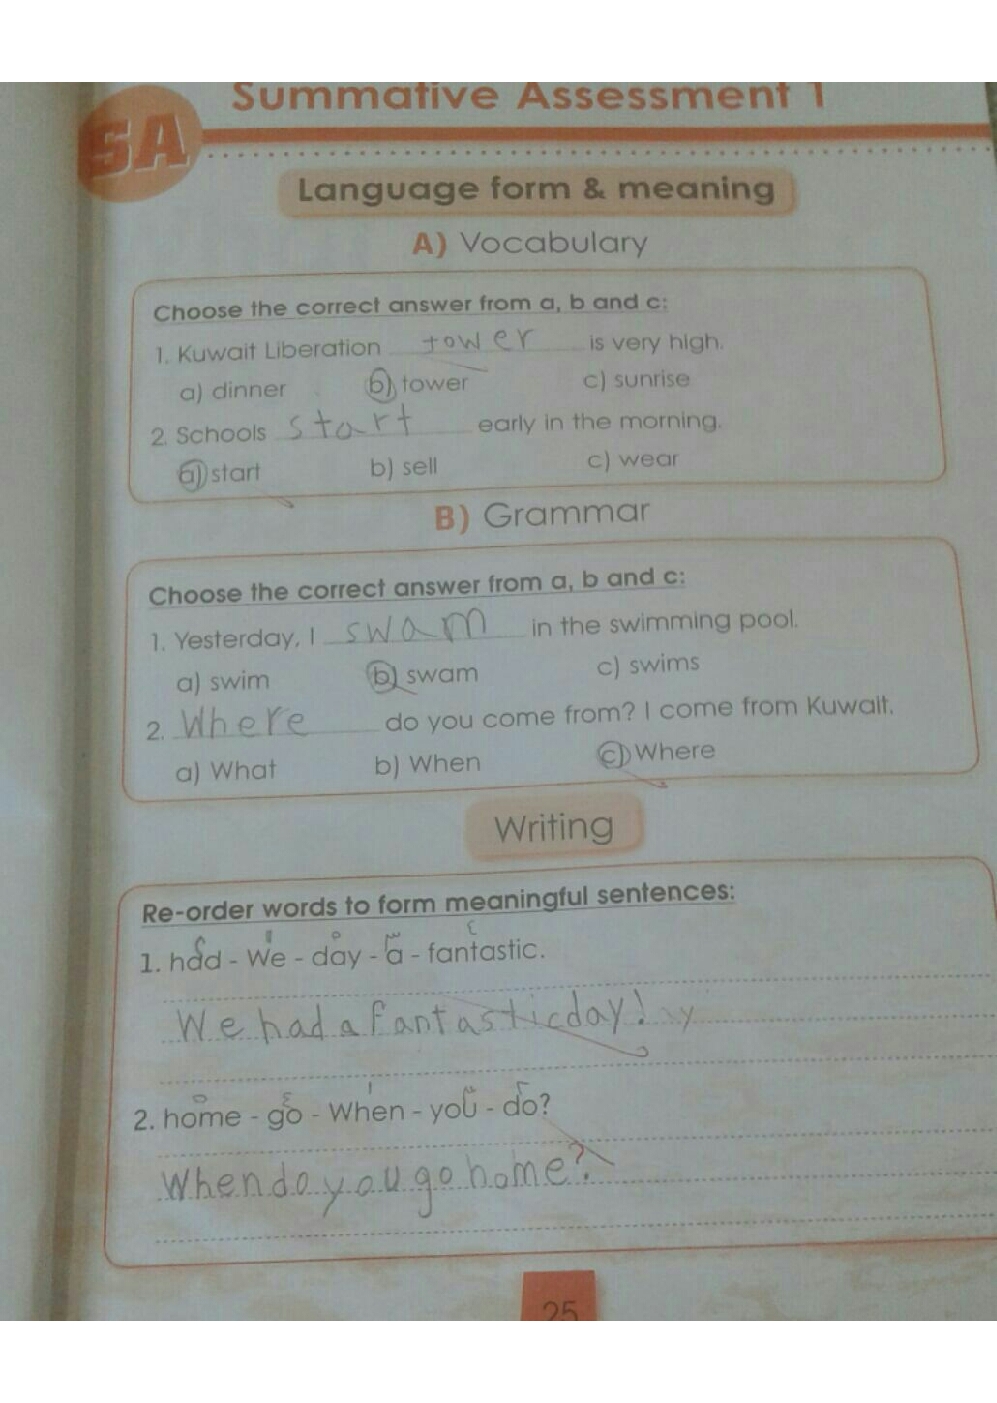 Summative Assessment 1
SA
Language form & meaning
A) Vocabulary
Choose the correct answer from a, b and c:
1. Kuwait Liberation tower is very high.
a) dinner b) tower c) sunrise
2. Schools start early in the morning.
a) start b) sell c) wear
B) Grammar
Choose the correct answer from a, b and c:
1. Yesterday, I swam in the swimming pool.
a) swim b) swam c) swims
2. Where do you come from? I come from Kuwait.
a) What b) When c) Where
Writing
Re-order words to form meaningful sentences:
1. had - We - day - a - fantastic.
We had a fantastic day!
2. home - go - When - you - do?
When do you go home?
25